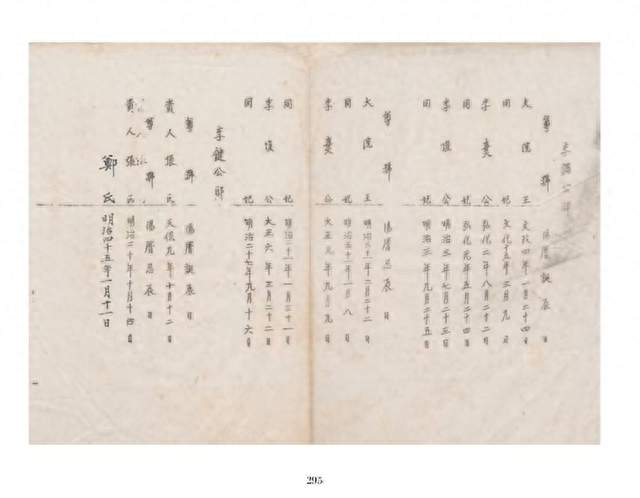 李鍝公邸
尊號 陽曆誕辰日
大院王 文政四年一月二十四日
同妃 文化十五年三月九日
李熹公 弘化二年八月二十二日
同妃 弘化元年五月二十四日
李埈公 明治三年七月二十三日
同妃 明治三年九月二十五日
尊號 陽曆忌辰日
大院王 明治三十一年二月二十二日
同妃 明治三十一年一月八日
李熹公 大正元年九月九日
同妃 明治二十一年一月三十一日
李埈公 大正六年三月二十二日
同妃 明治二十七年九月十六日
李鍵公邸
尊號 陽曆誕辰日
貴人張氏 天保九年十月十二日
尊號 陽曆忌辰日
貴人張氏 明治二十年十月十四日
鄭氏 明治四十五年一月十一日
295